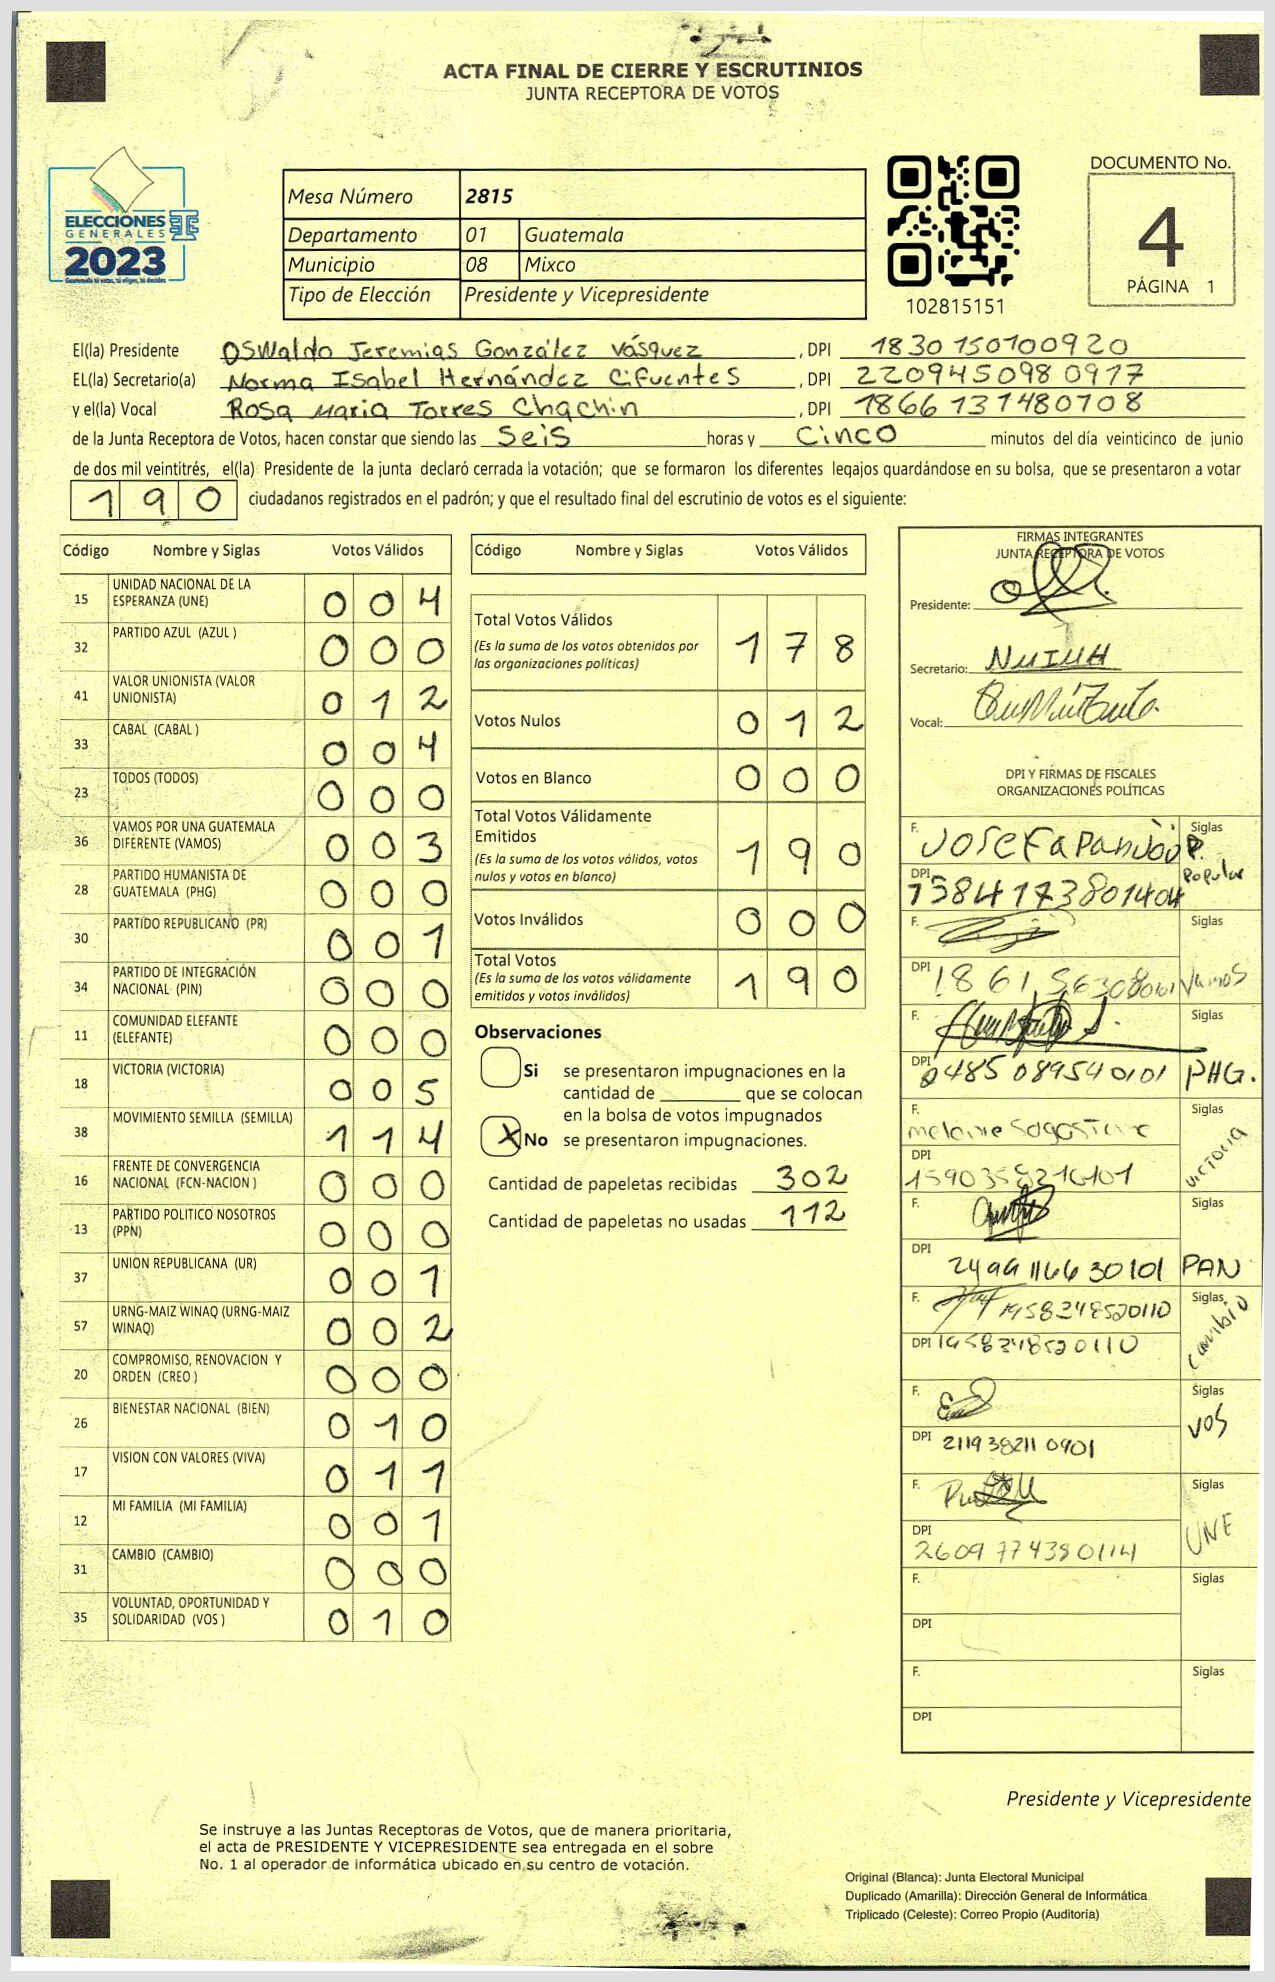 ACTA FINAL DE CIERRE Y ESCRUTINIOS
JUNTA RECEPTORA DE VOTOS
ELECCIONES
GENERALES
2023
Guatemala tú votas, tú eliges, tú decides
Mesa Número 2815
Departamento 01 Guatemala
Municipio 08 Mixco
Tipo de Elección Presidente y Vicepresidente
102815151
DOCUMENTO No.
4
PÁGINA 1
El(la) Presidente Oswaldo Jeremias González Vásquez , DPI 1830150100920
EL(la) Secretario(a) Norma Isabel Hernández Cifuentes , DPI 2209450980917
y el(la) Vocal Rosa Maria Torres Chachin , DPI 1866131480108
de la Junta Receptora de Votos, hacen constar que siendo las Seis horas y Cinco minutos del día veinticinco de junio
de dos mil veintitrés, el(la) Presidente de la junta declaró cerrada la votación; que se formaron los diferentes legajos guardándose en su bolsa, que se presentaron a votar
190 ciudadanos registrados en el padrón; y que el resultado final del escrutinio de votos es el siguiente:
Código Nombre y Siglas Votos Válidos
15 UNIDAD NACIONAL DE LA ESPERANZA (UNE) 0 0 4
32 PARTIDO AZUL (AZUL ) 0 0 0
41 VALOR UNIONISTA (VALOR UNIONISTA) 0 1 2
33 CABAL (CABAL ) 0 0 4
23 TODOS (TODOS) 0 0 0
36 VAMOS POR UNA GUATEMALA DIFERENTE (VAMOS) 0 0 3
28 PARTIDO HUMANISTA DE GUATEMALA (PHG) 0 0 0
30 PARTIDO REPUBLICANO (PR) 0 0 1
34 PARTIDO DE INTEGRACIÓN NACIONAL (PIN) 0 0 0
11 COMUNIDAD ELEFANTE (ELEFANTE) 0 0 0
18 VICTORIA (VICTORIA) 0 0 5
38 MOVIMIENTO SEMILLA (SEMILLA) 1 1 4
16 FRENTE DE CONVERGENCIA NACIONAL (FCN-NACION ) 0 0 0
13 PARTIDO POLITICO NOSOTROS (PPN) 0 0 0
37 UNION REPUBLICANA (UR) 0 0 1
57 URNG-MAIZ WINAQ (URNG-MAIZ WINAQ) 0 0 2
20 COMPROMISO, RENOVACION Y ORDEN (CREO ) 0 0 0
26 BIENESTAR NACIONAL (BIEN) 0 1 0
17 VISION CON VALORES (VIVA) 0 1 1
12 MI FAMILIA (MI FAMILIA) 0 0 1
31 CAMBIO (CAMBIO) 0 0 0
35 VOLUNTAD, OPORTUNIDAD Y SOLIDARIDAD (VOS ) 0 1 0
Código Nombre y Siglas Votos Válidos
Total Votos Válidos 1 7 8
(Es la suma de los votos obtenidos por
las organizaciones políticas)
Votos Nulos 0 1 2
Votos en Blanco 0 0 0
Total Votos Válidamente
Emitidos 1 9 0
(Es la suma de los votos válidos, votos
nulos y votos en blanco)
Votos Inválidos 0 0 0
Total Votos 1 9 0
(Es la suma de los votos válidamente
emitidos y votos inválidos)
Observaciones
Si se presentaron impugnaciones en la
cantidad de que se colocan
en la bolsa de votos impugnados
X No se presentaron impugnaciones.
Cantidad de papeletas recibidas 302
Cantidad de papeletas no usadas 112
FIRMAS INTEGRANTES
JUNTA RECEPTORA DE VOTOS
Presidente:
Secretario:
Vocal:
DPI Y FIRMAS DE FISCALES
ORGANIZACIONES POLÍTICAS
F. Josefa Siglas P. Popular
DPI 1384173801404
F. Siglas Vamos
DPI
F. Siglas PHG.
DPI 0485089540101
F. Siglas Victoria
DPI
F. Siglas PAN
DPI 2499116630101
F. 1958348520110 Siglas Cambio
DPI 1958348520110
F. Siglas VOS
DPI 2119382110901
F. Siglas UNE
DPI 2609774380114
F. Siglas
DPI
F. Siglas
DPI
Presidente y Vicepresidente
Se instruye a las Juntas Receptoras de Votos, que de manera prioritaria,
el acta de PRESIDENTE Y VICEPRESIDENTE sea entregada en el sobre
No. 1 al operador de informática ubicado en su centro de votación.
Original (Blanca): Junta Electoral Municipal
Duplicado (Amarilla): Dirección General de Informática
Triplicado (Celeste): Correo Propio (Auditoria)